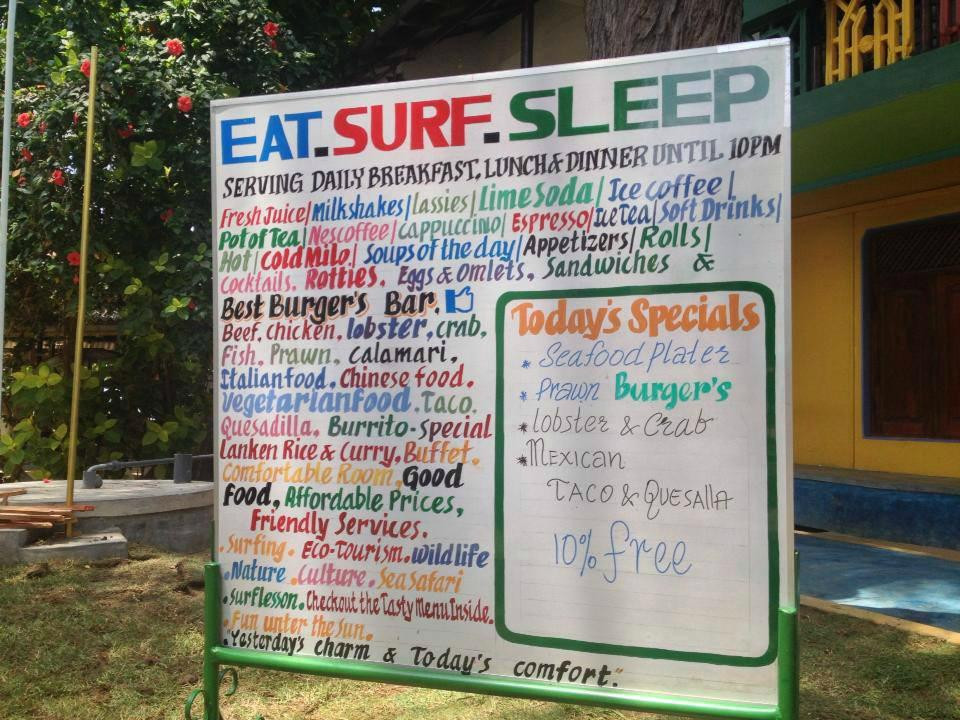 EAT.SURF.SLEEP
SERVING DAILY BREAKFAST, LUNCH & DINNER UNTIL 10PM
Fresh Juice/Milkshakes/Lassies/Lime Soda/Ice coffee/
Pot of Tea/Nescoffee/Cappuccino/Espresso/Ice Tea/Soft Drinks/
Hot/Cold Milo/Soups of the day/Appetizers/Rolls/
Cocktails. Rotties. Eggs & Omlets. Sandwiches &
Best Burger's Bar.
Beef, chicken, lobster, crab,
Fish, Prawn, calamari,
Italian food. Chinese food.
Vegetarian food. Taco.
Quesadilla. Burrito-special
Lanken Rice & Curry, Buffet.
Comfortable Room, Good
Food, Affordable Prices,
Friendly Services.
.Surfing. Eco-Tourism. Wild life
.Nature .Culture. Sea Safari
.Surf lesson. Checkout the Tasty Menu Inside.
.Fun unter the Sun.
"Yesterday's charm & Today's comfort."
Today's Specials
* Seafood Plater
* Prawn Burger's
* Lobster & Crab
* Mexican
TACO & QUESALLA
10% free